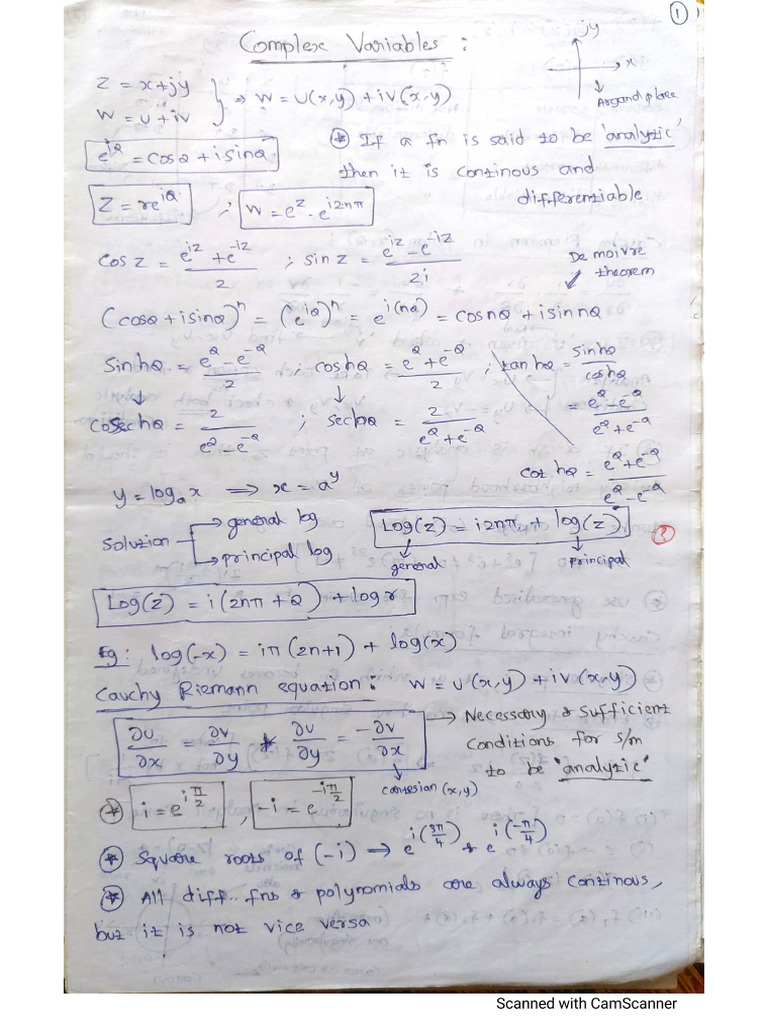 1
Complex Variables :
jy
x
Argand place
Z = x+jy
W = u+iv
⇒ W = U(x,y) + iV(x,y)
e^{iθ} = cosθ + isinθ
⊛ If a fn is said to be 'analytic'
then it is continous and
differentiable
Z = re^{iθ} ; W = e^z · e^{i2nπ}
cos z = (e^{iz} + e^{-iz})/2 ; sin z = (e^{iz} - e^{-iz})/2i
De moivre
theorem
(cosθ + isinθ)^n = (e^{iθ})^n = e^{i(nθ)} = cosnθ + isinnθ
Sinhθ = (e^θ - e^{-θ})/2 ; coshθ = (e^θ + e^{-θ})/2 ; tanhθ = sinhθ/coshθ
= (e^θ - e^{-θ})/(e^θ + e^{-θ})
cosechθ = 2/(e^θ - e^{-θ}) ; sechθ = 2/(e^θ + e^{-θ})
cothθ = (e^θ + e^{-θ})/(e^θ - e^{-θ})
y = log_a x ⟹ x = a^y
Solution → general log
→ principal log
Log(z) = i2nπ + log(z)
?
general principal
Log(z) = i(2nπ + θ) + log r
Eg: log(-x) = iπ(2n+1) + log(x)
Cauchy Riemann equation: W = U(x,y) + iV(x,y)
∂U/∂x = ∂V/∂y & ∂U/∂y = -∂V/∂x
→ Necessary & Sufficient
Conditions for s/m
to be 'analytic'
cartesian (x,y)
⊛ i = e^{iπ/2} , -i = e^{-iπ/2}
⊛ Square roots of (-i) → e^{i(3π/4)} & e^{i(-π/4)}
⊛ All diff.. fns & polynomials are always continous,
but it is not vice versa
Scanned with CamScanner